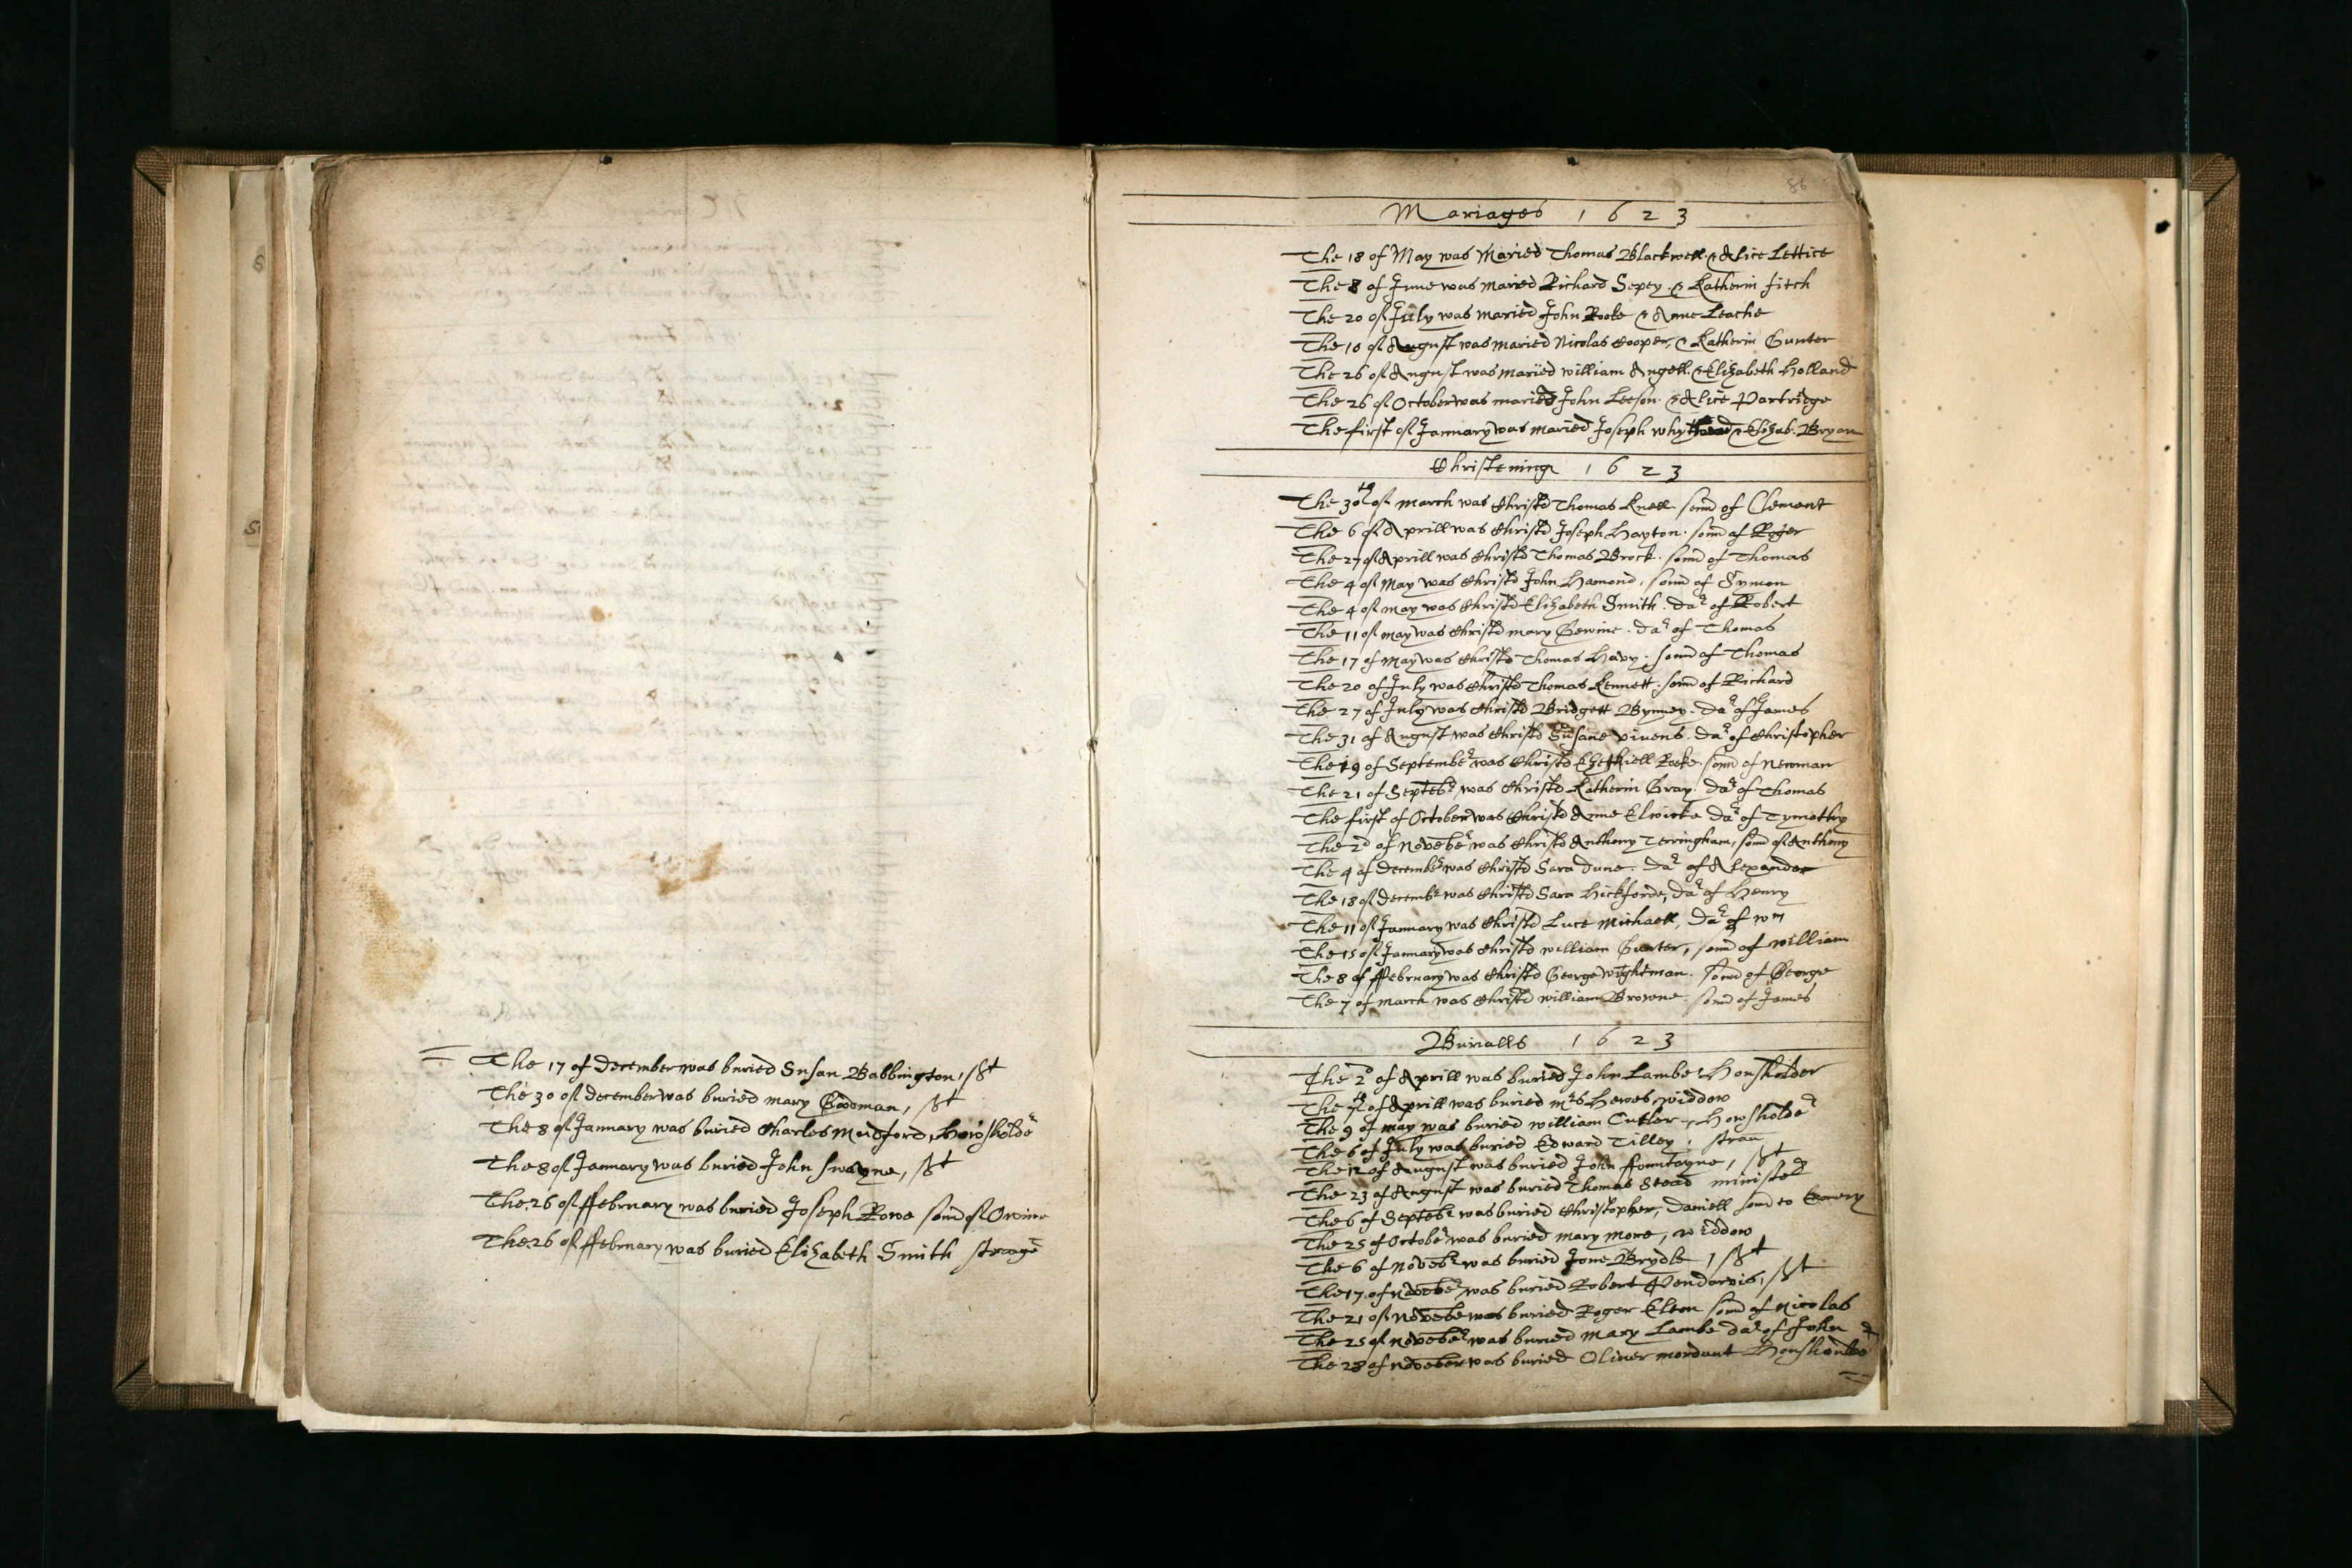 The 17 of December was buried Susan Babbington, st
The 30 of December was buried mary Goodman, st
The 8 of January was buried Charles Mudford, Howsholdr
The 8 of January was buried John swayne, st
The 26 of ffebruary was buried Joseph Rowe sonn of
The 26 of ffebruary was buried Elizabeth Smith
86
Mariages 1623
The 18 of May was Maried Thomas Blackwell & Alice Lettice
The 8 of June was maried Richard Sepey & Katherin fitch
The 20 of July was maried John Rooke & Anne Leache
The 10 of August was maried Nicolas Cooper, & Katherin Gunter
The 26 of August was maried william Angell & Elizabeth Holland
The 26 of October was maried John Leeson & Alice Partridge
The first of January was maried Joseph & Elizab. Bryan
Christening 1623
The 30th of march was Christd Thomas Knell sonn of Clement
The 6 of Aprill was Christd Joseph Hayton. sonn of Roger
The 27 of Aprill was Christd Thomas Brock. sonn of Thomas
The 4 of May was Christd John Hamond, sonn of Symon
The 4 of may was Christd Elizabeth Smith. dar of Robert
The 11 of may was Christd mary Gewine. dar of Thomas
The 17 of May was Christd Thomas Havy. sonn of Thomas
The 20 of July was Christd Thomas Kennett. sonn of Richard
The 27 of July was Christd Bridgett Bynney. dar of James
The 31 of August was Christd Susane vivens. dar of Christopher
The 19 of Septembr was Christd Ezekiell Rooke. sonn of Newman
The 21 of Septebr was Christd Katherin Gray. dar of Thomas
The first of October was Christd Anne Elwicke dar of Tymothy
The 2d of Novebr was Christd Anthony Terringham, sonn of Anthony
The 4 of decembr was Christd Sara dune. dar of Alexander
The 18 of decembr was Christd Sara Hickforde, dar of Henry
The 11 of January was Christd Luce Michaell, dar of wm
The 15 of January was Christd william Gunter, sonn of william
The 8 of ffebruary was Christd George wightman. sonn of George
The 7 of march was Christd william Browne. sonn of James
Burialls 1623
The 2d of Aprill was buried John Lambe, Housholder
The 7th of Aprill was buried mrs Hewes, widdow
The 9 of may was buried william Cutler, Howsholdr
The 6 of July was buried Edward Tilley, stran
The 12 of August was buried John ffountayne, st
The 23 of August was buried Thomas Stead ministr
The 6 of Septebr was buried Christopher, daniell sonn to
The 25 of Octobr was buried mary more, widdow
The 6 of Novebr was buried Jone Brydle, st
The 17 of Novebr was buried Robert Pendarvis, st
The 21 of Novebr was buried Roger Elson sonn of Nicolas
The 25 of Novebr was buried mary Lambe dar of John
The 28 of November was buried Oliver mordant